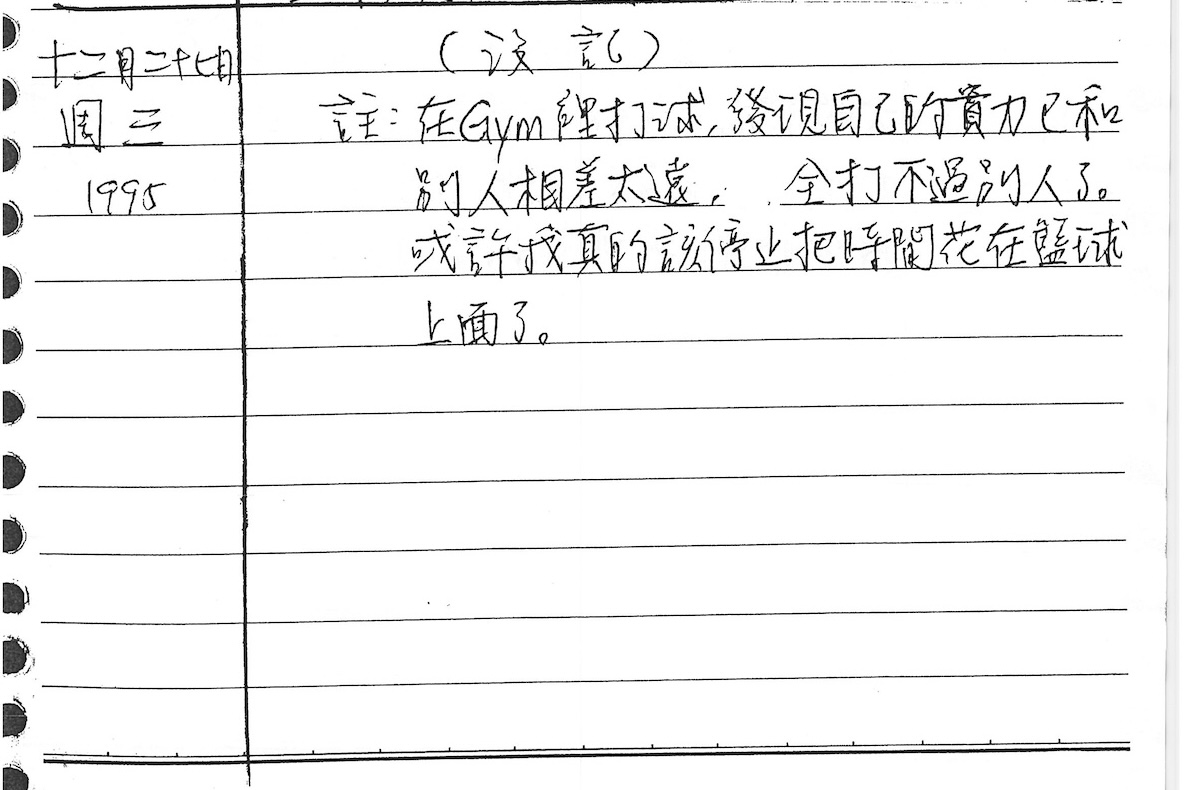 十二月二十七日
週三
1995
（沒 記）
註：在Gym裡打球，發現自己的實力已和
別人相差太遠，全打不過別人了。
或許我真的該停止把時間花在籃球
上面了。